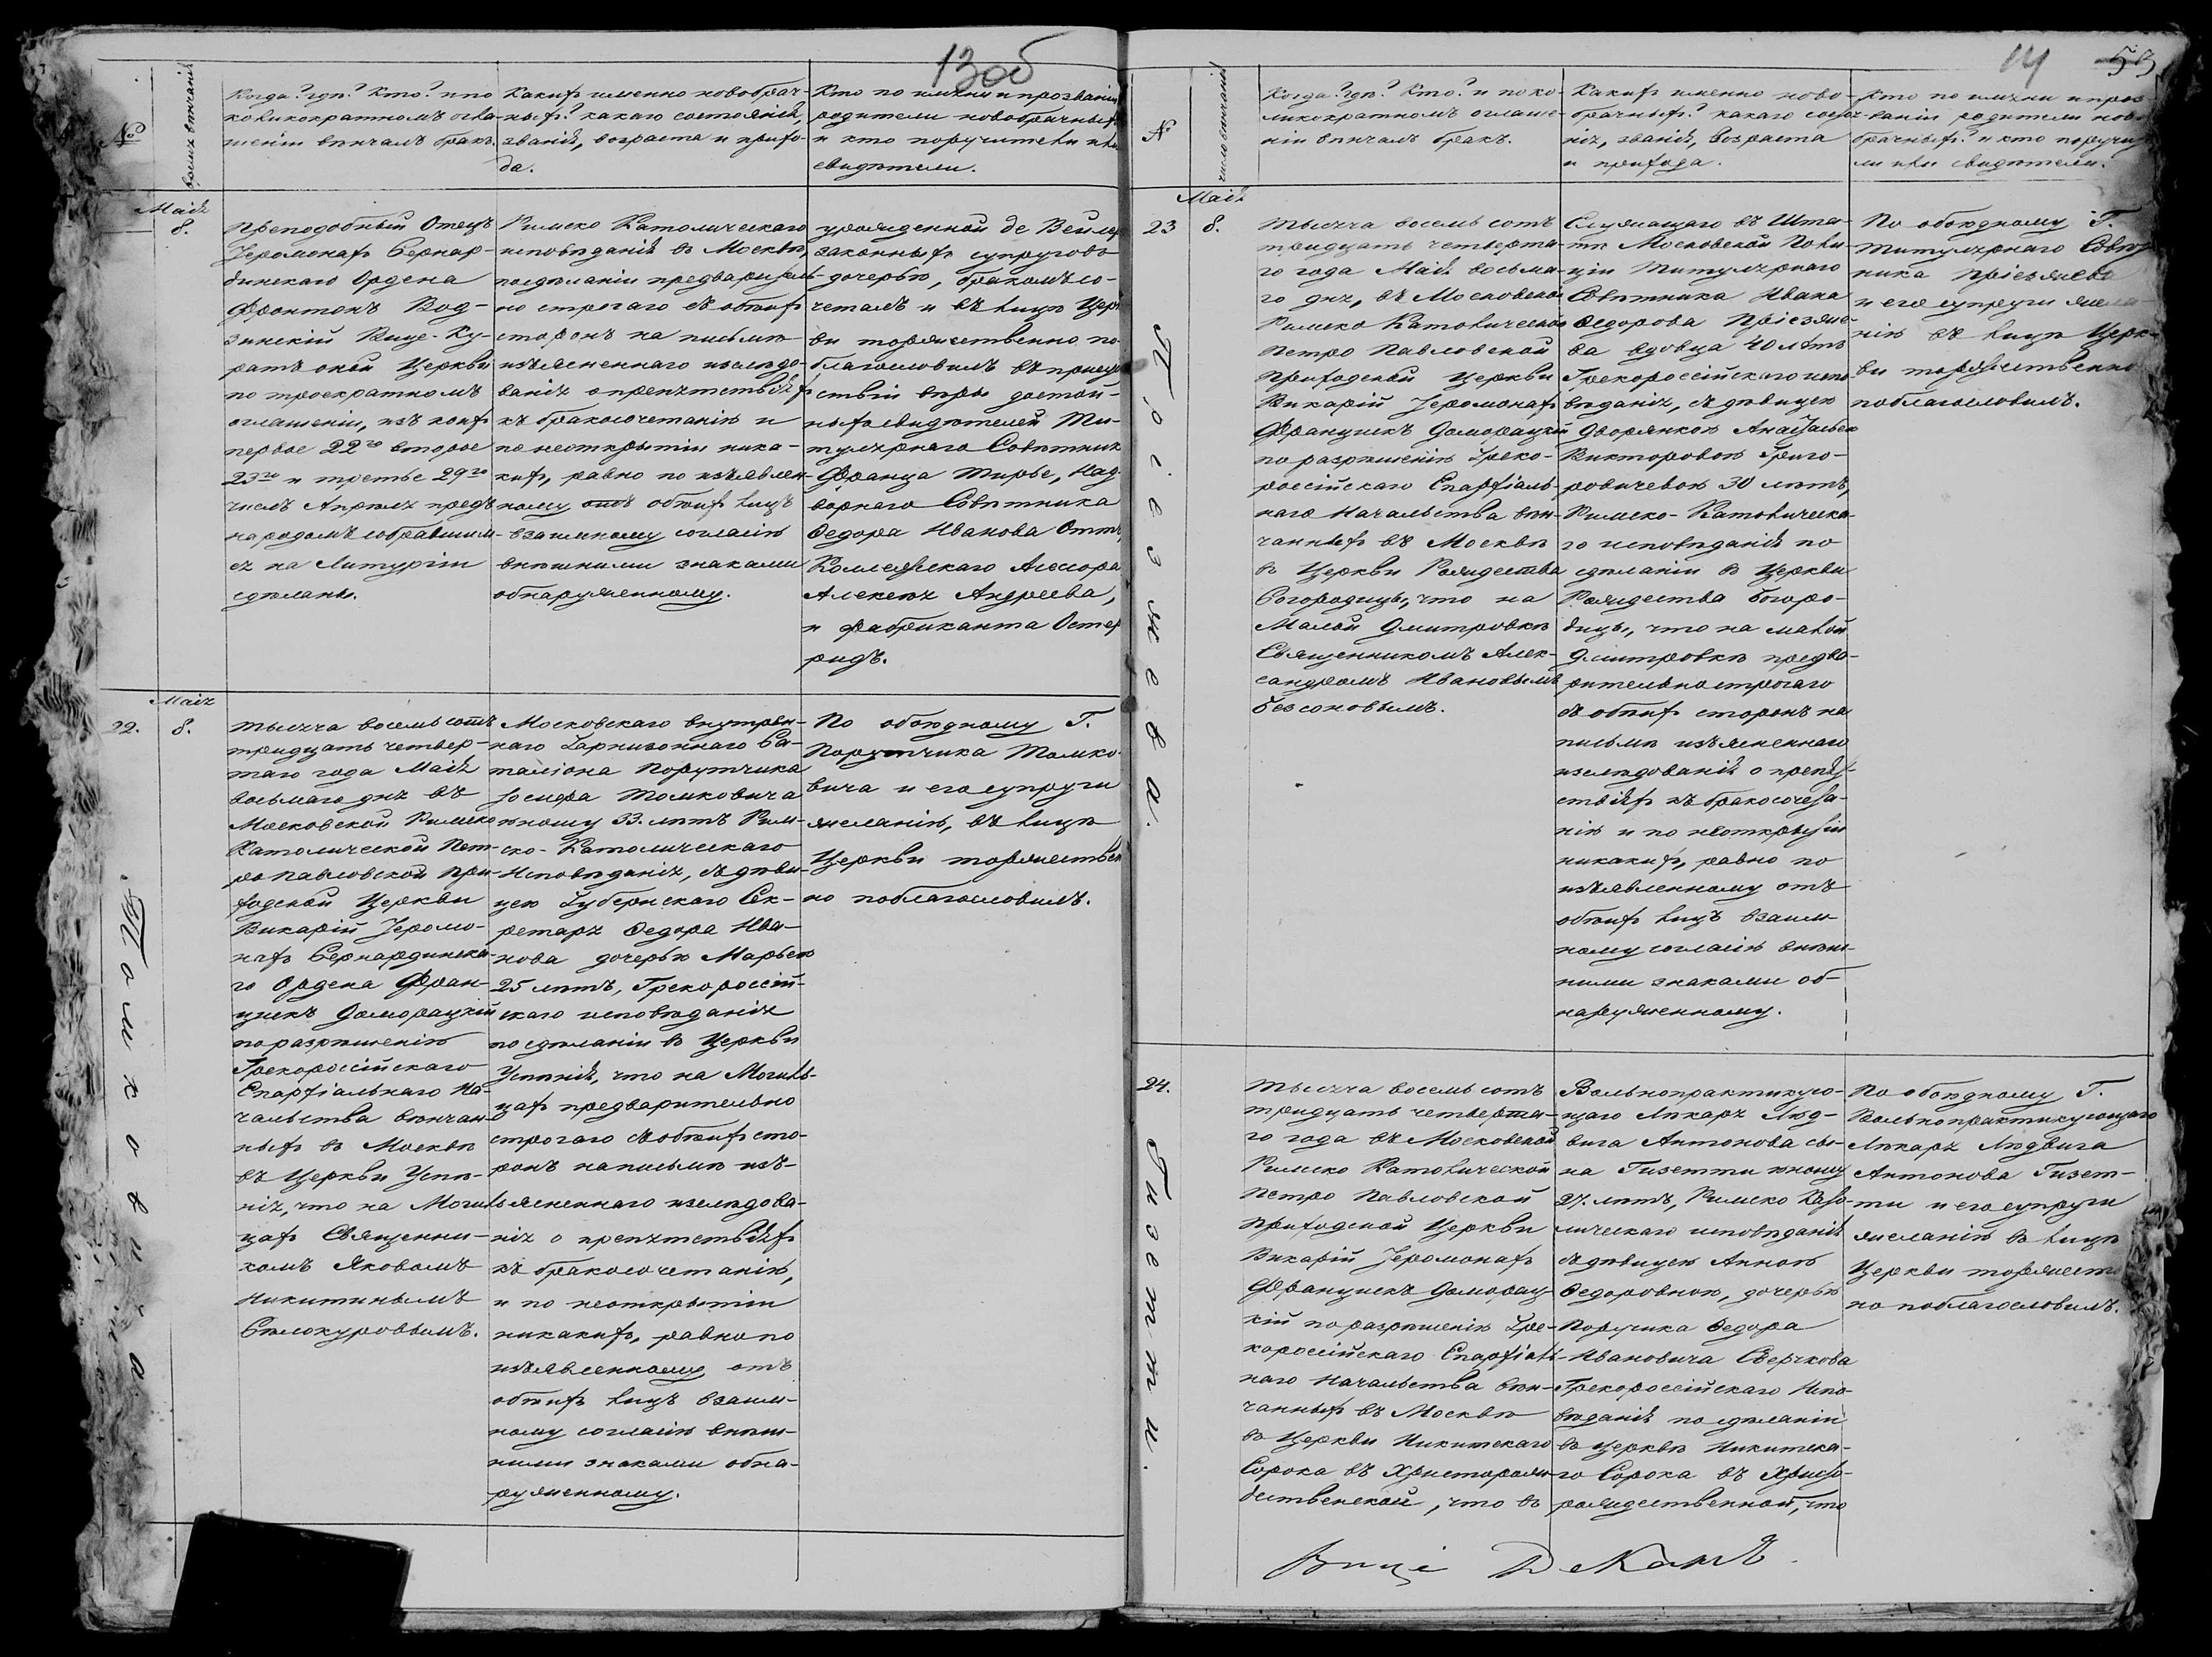 13 об
№
время венчанія
Когда? гдѣ? Кто? и по
коликократномъ огла-
шеніи вѣнчалъ бракъ.
Какихъ именно новобрач-
ныхъ? какаго состоянія,
званія, возраста и прихо-
да.
Кто по имени и прозванію
родители новобрачныхъ
и кто поручители или
свидѣтели.
Маія
8.
Преподобный Отецъ
Іеромонахъ Бернар-
динскаго Ордена
Фронтонъ Вод-
зинскій Вице-Ку-
ратъ оной Церкви
по троекратномъ
оглашеніи, изъ коихъ
первое 22го второе
23го и третье 29го
числъ Апрѣля предъ
народомъ собравшим-
ся на Литургіи
сдѣланы.
Римско Католическаго
исповѣданія въ Москвѣ,
посдѣланіи предваритель-
но строгаго съ обѣихъ
сторонъ на письмѣ
изъясненнаго изслѣдо-
ванія о препятствіяхъ
къ бракосочетанію и
по неоткрытіи ника-
кихъ, равно по изъявлен-
ному отъ обѣихъ лицъ
взаимному согласію
внѣшними знаками
обнаруженному.
урожденной де Вейлер
законныхъ супруговъ
дочерью, бракомъ со-
четалъ и въ лицѣ Цер
ви торжественно по-
благословилъ въ присут
ствіи вѣры достой-
ныхъ свидѣтелей Ти-
тулярнаго Совѣтник
Франца Тирье, Над-
ворнаго Совѣтника
Ѳедора Иванова Отто,
Коллежскаго Ассесора
Алексѣя Андреева,
и фабриканта Остер
ридъ.
Маія
22.
8.
Томковича
Тысяча восемь сотъ
тридцать четвер-
таго года Маія
восьмаго дня въ
Московской Римско
Католической Пет-
ро павловской При-
ходской Церкви
Викарій Іеромо-
нахъ Бернардинска-
го Ордена Фран-
цискъ Доморацкій
по разрѣшенію
Грекороссійскаго
Епархіальнаго На-
чальства вѣнчан-
ныхъ въ Москвѣ
въ Церкви Успѣ-
нія, что на Могиль
цахъ Священни-
комъ Яковомъ
Никитинымъ
Бѣлокуровымъ.
Московскаго внутрен-
наго Гарнизоннаго Ба-
таліона Порутчика
Іосифа Томковича
юношу 33. лѣтъ Рим-
ско-Католическаго
Исповѣданія, съ дѣви-
цею Губернскаго Сек-
ретаря Ѳедора Ива-
нова дочерью Марьею
25 лѣтъ, Грекороссій-
скаго исповѣданія
по сдѣланіи въ Церкви
Успѣнія, что на Могиль-
цахъ предварительно
строгаго съ обѣихъ сто-
ронъ на письмѣ изъ-
ясненнаго изслѣдова-
нія о препятствіяхъ
къ бракосочетанію,
и по неоткрытіи
никакихъ, равно по
изъявленному отъ
обѣихъ лицъ взаим-
ному согласію внѣш-
ними знаками обна-
руженному.
По обоюдному Г.
Порутчика Томко-
вича и его супруги
желанію, въ лицѣ
Церкви торжествен
но поблагословилъ.
14 53
№
число вѣнчанія
Когда? гдѣ? Кто? и по ко-
ликократномъ оглаше-
ніи вѣнчалъ бракъ.
Какихъ именно ново-
брачныхъ? какаго состоя-
нія, званія, возраста
и прихода.
Кто по имени и проз-
ванію родители ново
брачныхъ? и кто поручите
ли или свидѣтели.
Маія
23
8.
Пріезжева.
Тысяча восемь сотъ
тридцать четверта-
го года Маія восьма-
го дня, въ Московской
Римско Католической
Петро Павловской
Приходской Церкви
Викарій Іеромонахъ
Францискъ Доморацкій
по разрѣшенію Греко-
россійскаго Епархіаль-
наго Начальства вѣн-
чанныхъ въ Москвѣ
въ Церкви Рождества
Богородицы, что на
Малой Дмитровкѣ
Священникомъ Алек-
сандромъ Ивановымъ
Безсоновымъ.
Служащаго въ Шта-
тѣ Московской Поли-
ціи Титулярнаго
Совѣтника Ивана
Ѳедорова Пріезже-
ва вдовца 40 лѣтъ
Грекороссійскаго испо-
вѣданія, съ дѣвицею
Дворянкою Анастасьею
Викторовою Григо-
ровичевою 30 лѣтъ,
Римско-Католическа-
го исповѣданія по
сдѣланіи въ Церкви
Рождества Богоро-
дицы, что на малой
Дмитровкѣ предва-
рительно строгаго
съ обѣихъ сторонъ на
письмѣ изъясненнаго
изслѣдованія о препят-
ствіяхъ къ бракосочета-
нію и по неоткрытіи
никакихъ, равно по
изъявленному отъ
обѣихъ лицъ взаим-
ному согласію внѣш-
ними знаками об-
наруженному.
По обоюдному Г.
Титулярнаго Совѣт
ника Пріезжева
и его супруги жела-
нію въ лицѣ Церк-
ви торжественно
поблагословилъ.
24.
Гизетти.
Тысяча восемь сотъ
тридцать четверта-
го года въ Московской
Римско Католической
Петро Павловской
Приходской Церкви
Викарій Іеромонахъ
Францискъ Доморац-
кій по разрѣшенію Гре-
короссійскаго Епархіаль-
наго Начальства вѣн-
чанныхъ въ Москвѣ
въ Церкви Никитскаго
Сорока въ Христорож-
дественской, что въ
Вольнопрактикую-
щаго Лѣкаря Люд-
вига Антонова сы-
на Гизетти юношу
27. лѣтъ, Римско Като-
лическаго исповѣданія
съ дѣвицею Анною
Ѳедоровною, дочерью
Поручика Ѳедора
Ивановича Сверчкова
Грекороссійскаго Испо-
вѣданія по сдѣланіи
въ церквѣ Никитска-
го Сорока въ Христо-
рождественной, что
По обоюдному Г.
Вольнопрактикующаго
Лѣкаря Людвига
Антонова Гизет-
ти и его супруги
желанію въ лицѣ
Церкви торжестве
но поблагословилъ.
Вице Деканъ